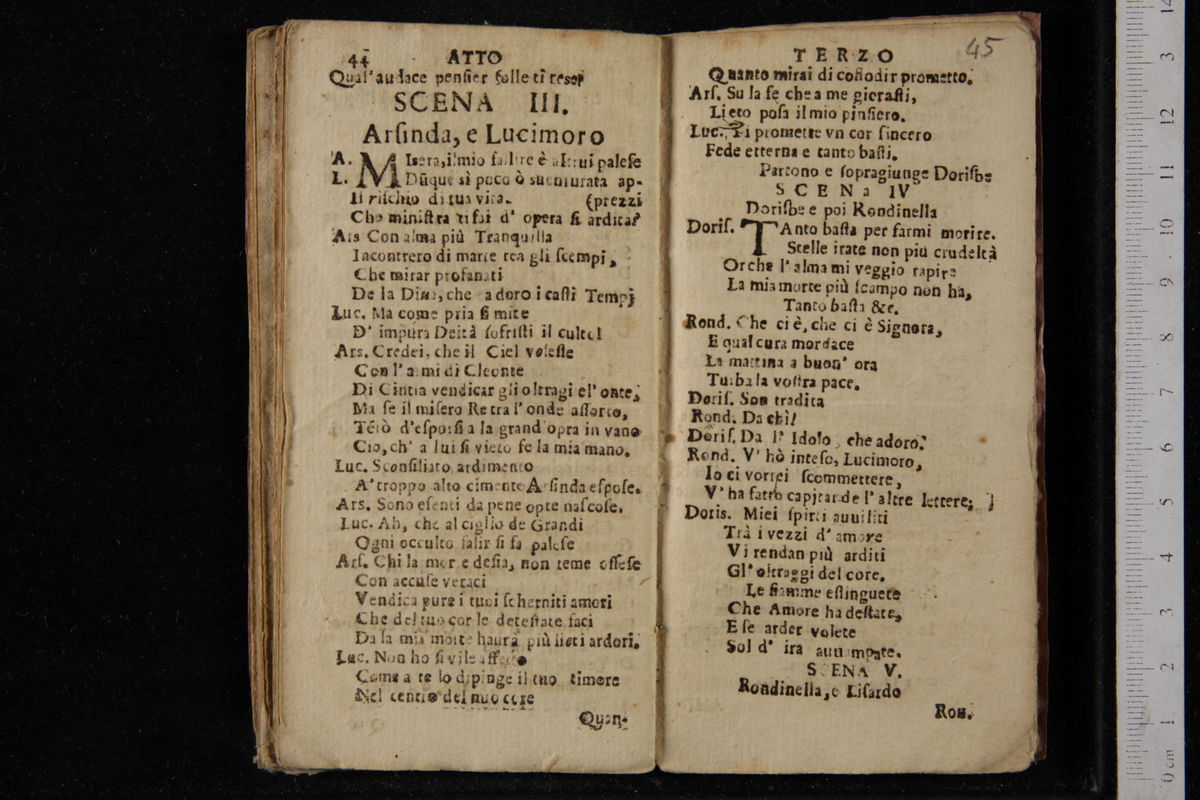 44 ATTO
Qual'audace pensier folle ti rese?
SCENA III.
Arsinda, e Lucimoro
A. MIsera, il mio fallire è altrui palese
L. Dũque sì poco ò suenturata ap-
Il rischio di tua vita. (prezzi
Che ministra ti fai d' opera sì ardita?
Ars Con alma più Tranquilla
Incontrero di morte rea gli scempi,
Che mirar profanati
De la Diua, che adoro i casti Tempj
Luc. Ma come pria sì mite
D' impura Deità sofristi il culto!
Ars. Credei, che il Ciel volesse
Con l' armi di Cleonte
Di Cintia vendicar gli oltragi e l' onte;
Ma se il misero Re tra l' onde assorto,
Tétò d'esporsi a la grand' opra in vano
Cio, ch' a lui si vieto fe la mia mano.
Luc. Sconsiliato ardimento
A' troppo alto cimento Arsinda espose.
Ars. Sono esenti da pene opre nascose.
Luc. Ah, che al ciglio de Grandi
Ogni occulto falir si fa palese
Ars. Chi la mor e desia, non teme offese
Con accuse veraci
Vendica pure i tuoi scherniti amori
Che del tuo cor le detestate faci
Da la mia morte haura più lieti ardori.
Luc. Non ho sì vile affetto
Come a te lo dipinge il tuo timore
Nel centro del tuo core
Quan-
45
TERZO
Quanto mirai di cosodir prometto.
Ars. Su la fe che a me giurasti,
Lieto posa il mio pinsiero.
Luc. Ti promette vn cor sincero
Fede etterna e tanto basti.
Partono e sopragiunge Dorisbe
SCENA IV
Dorisbe e poi Rondinella
Doris. TAnto basta per farmi morire.
Stelle irate non più crudeltà
Or che l' alma mi veggio rapire
La mia morte più scampo non ha,
Tanto basta &c.
Rond. Che ci è, che ci è Signora,
E qual cura mordace
La mattina a buon' ora
Turba la vostra pace.
Doris. Son tradita
Rond. Da chi!
Doris. Da l' Idolo, che adoro.
Rond. V' hò inteso, Lucimoro,
Io ci vorrei scommettere,
V' ha fatto capitar de l' altre lettere;
Doris. Miei spirti auuiliti
Trà i vezzi d' amore
Vi rendan più arditi
Gl' oltraggi del core.
Le fiamme estinguete
Che Amore ha destate,
E se arder volete
Sol d' ira auuampate.
SCENA V.
Rondinella, e Lisardo
Ron.